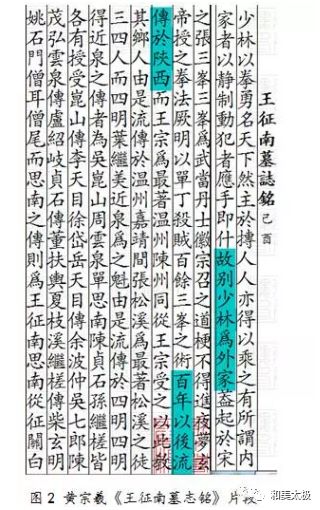 王征南墓誌銘 己酉
少林以拳勇名天下然主於搏人人亦得以乘之有所謂内
家者以静制動犯者應手即仆故别少林為外家葢起於宋
之張三峯三峯為武當丹士徽宗召之道梗不得進夜夢玄
帝授之拳法厥明以單丁殺賊百餘三峯之術百年以後流
傳於陝西而王宗為最著温州陳州同從王宗受之以此教
其鄉人由是流傳於温州嘉靖間張松溪為最著松溪之徒
三四人而四明葉繼美近泉為之魁由是流傳於四明四明
得近泉之傳者為吳崑山周雲泉單思南陳貞石孫繼槎皆
各有授受崑山傳李天目徐岱岳天目傳余波仲吳七郎陳
茂弘雲泉傳盧紹岐貞石傳董扶輿夏枝溪繼槎傳柴玄明
姚石門僧耳僧尾而思南之傳則為王征南思南從征關白
图 2 黄宗羲《王征南墓志铭》片段
和美太极